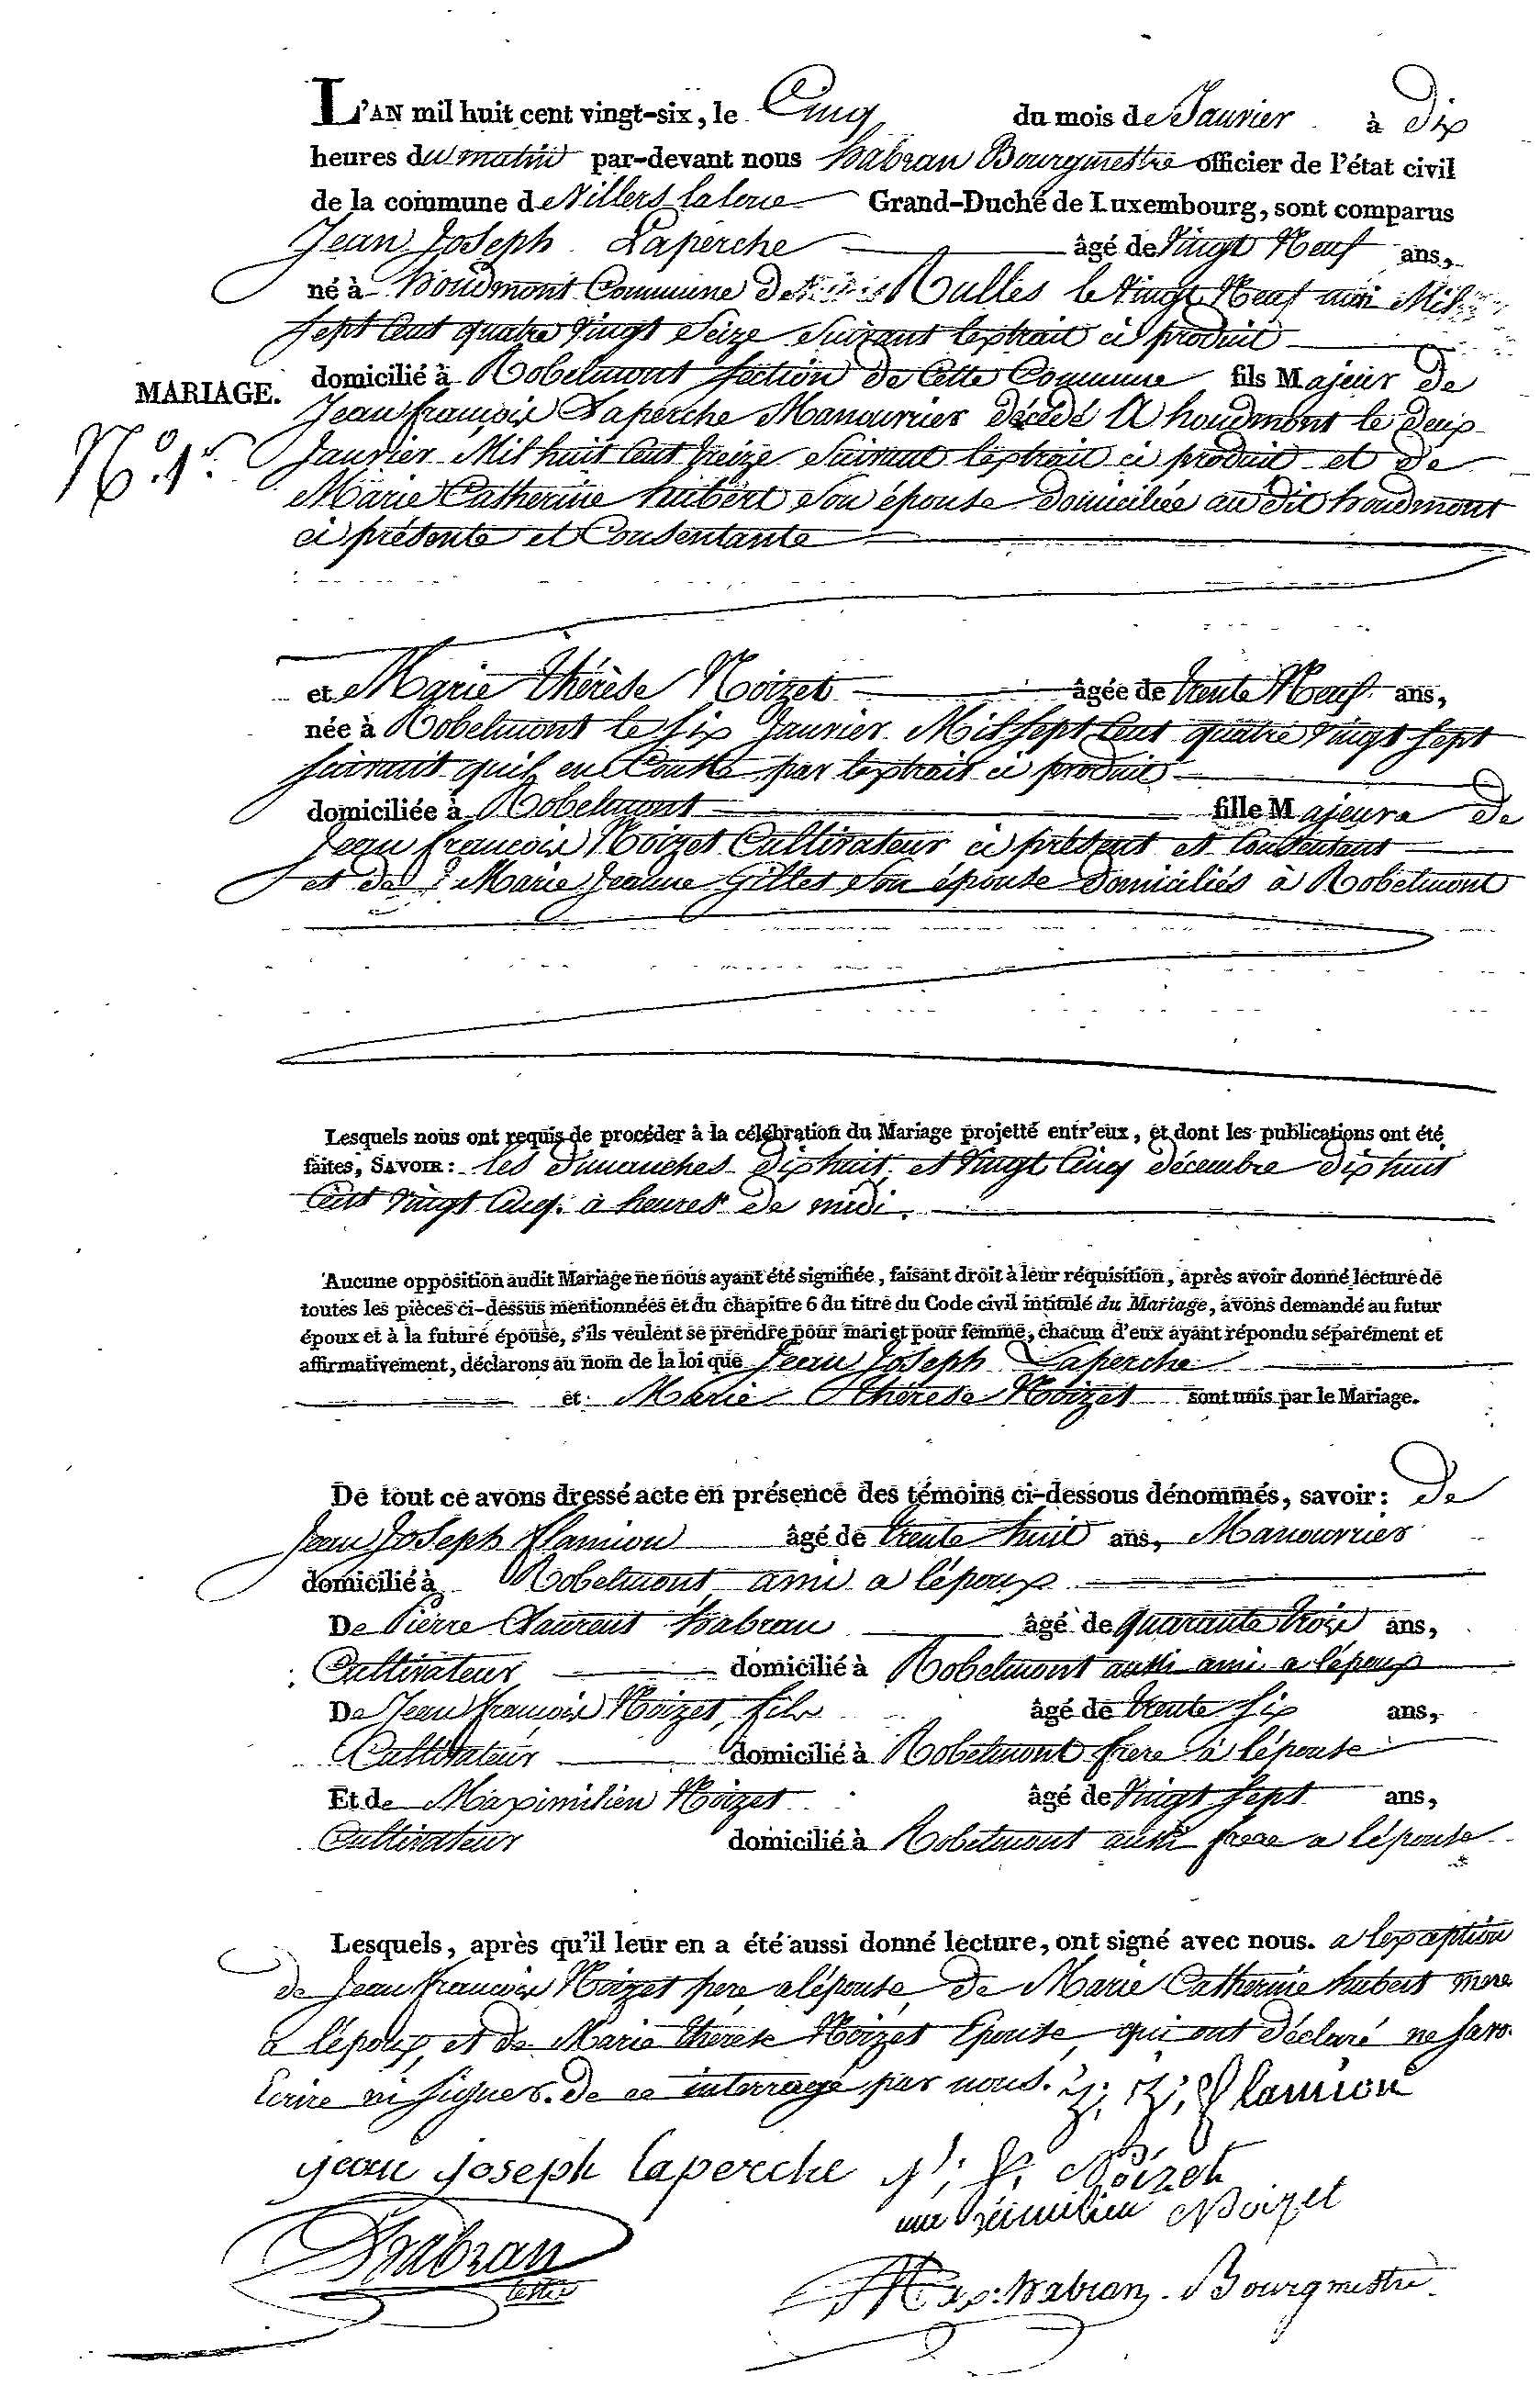 L'AN mil huit cent vingt-six, le Cinq du mois de Janvier à Dix
heures du matin par-devant nous habran Bourgmestre officier de l'état civil
de la commune de Villers la loue Grand-Duché de Luxembourg, sont comparus
Jean Joseph Laperche âgé de Vingt Neuf ans,
né à houdmont Commune de Rulles le Vingt Neuf mai Mil
sept Cent quatre vingt Seize Suivant lextrait ci produit
domicilié à Robelmont section de Cette Commune fils Majeur de
MARIAGE.
Jean françois Laperche Manouvrier décédé A houdmont le deux
N.º 1er
Janvier Mil huit Cent treize Suivant lextrait ci produit et de
Marie Catherine hubert son épouse domiciliée au dit houdmont
ci présente et Consentante
et Marie thérèse Noizet âgée de trente Neuf ans,
née à Robelmont le six Janvier Mil sept Cent quatre vingt sept
suivant quil en Conste par lextrait ci produit
domiciliée à Robelmont fille Majeure de
Jean françois Noizet Cultivateur ci présent et Consentant
et de Marie Jeanne Gilles son épouse domiciliés à Robelmont
Lesquels nous ont requis de procéder à la célébration du Mariage projetté entr'eux, et dont les publications ont été
faites, SAVOIR : les dimanches dix huit et vingt Cinq décembre dix huit
Cent vingt Cinq. à heures de midi.
Aucune opposition audit Mariage ne nous ayant été signifiée, faisant droit à leur réquisition, après avoir donné lecture de
toutes les pièces ci-dessus mentionnées et du chapitre 6 du titre du Code civil intitulé du Mariage, avons demandé au futur
époux et à la future épouse, s'ils veulent se prendre pour mari et pour femme, chacun d'eux ayant répondu séparément et
affirmativement, déclarons au nom de la loi que Jean Joseph Laperche
et Marie Thérese Noizet sont unis par le Mariage.
De tout ce avons dressé acte en présence des témoins ci-dessous dénommés, savoir : de
Jean Joseph flamion âgé de trente huit ans, Manouvrier
domicilié à Robelmont ami a lépoux
De Pierre Laurent habran âgé de quarante trois ans,
Cultivateur domicilié à Robelmont aussi ami a lépoux
De Jean françois Noizet, fils âgé de trente six ans,
Cultivateur domicilié à Robelmont frere à lépouse
Et de Maximilien Noizet âgé de Vingt sept ans,
Cultivateur domicilié à Robelmont aussi frere a lépouse
Lesquels, après qu'il leur en a été aussi donné lecture, ont signé avec nous. a lexception
de Jean francoix Noizet pere a lépouse, de Marie Catherine hubert mere
a lépoux, et de Marie thérèse Noizet Epouse, qui ont déclaré ne savo.
Ecrire ni signer. de ce interrogé par nous. J; J; flamion
jean joseph laperche J; f; Noizet
maximilien Noizet
habran
Max: habran Bourgmestre